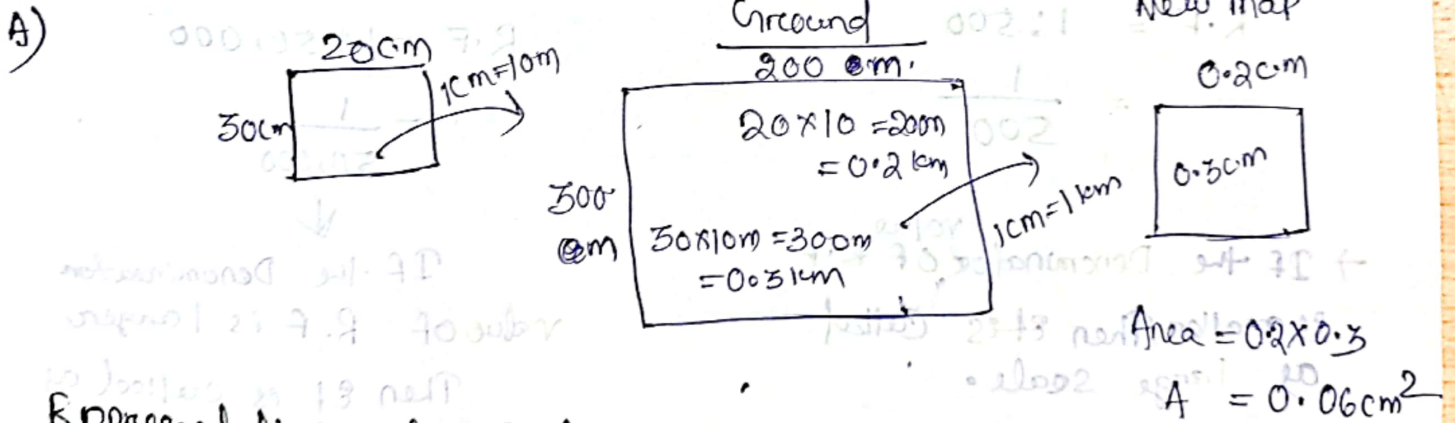 A)
20cm
30cm
1cm=10m
Ground
200 m.
20×10 =200m
=0.2km
300
m
30×10m =300m
=0.3km
1cm=1km
New Map
0.2cm
0.3cm
Area = 0.2×0.3
A = 0.06cm²